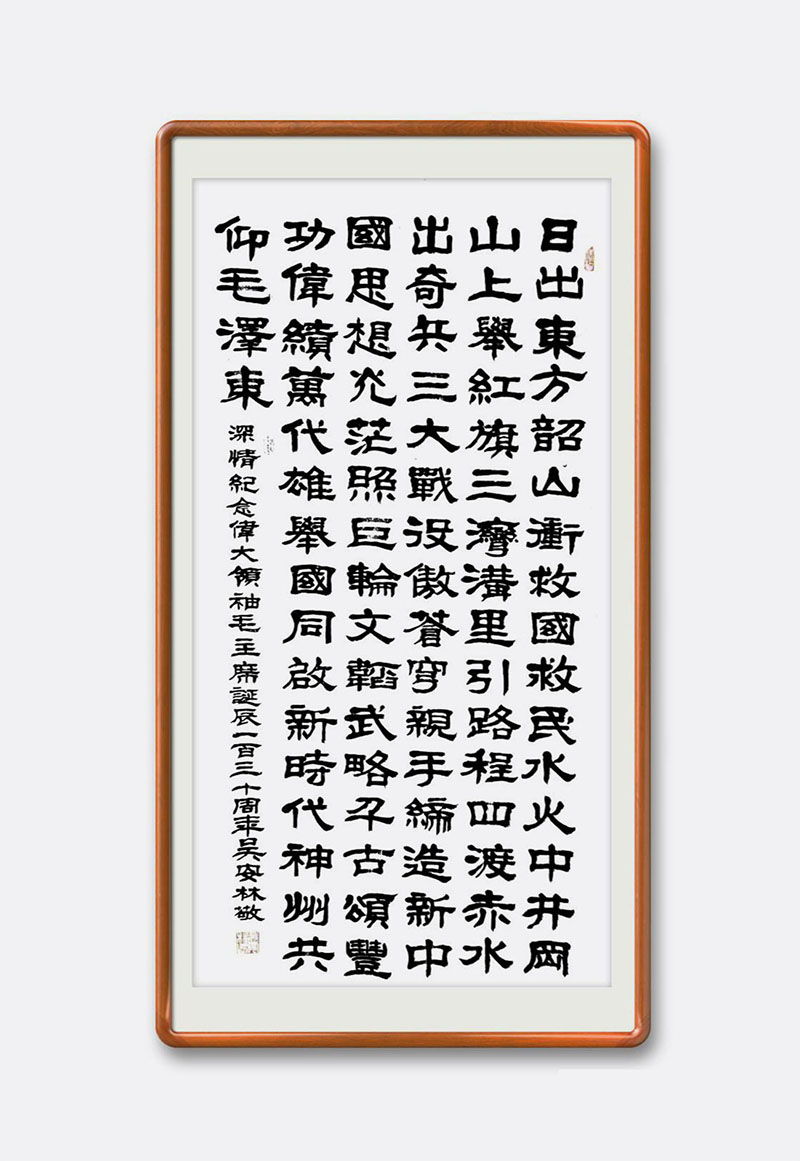 日出東方韶山衝救國救民水火中井岡
山上舉紅旗三灣溝里引路程四渡赤水
出奇兵三大戰役傲蒼穹親手締造新中
國思想光茫照巨輪文韜武略千古頌豐
功偉績萬代雄舉國同啟新時代神州共
仰毛澤東
深情紀念偉大領袖毛主席誕辰一百三十周年吳安林敬